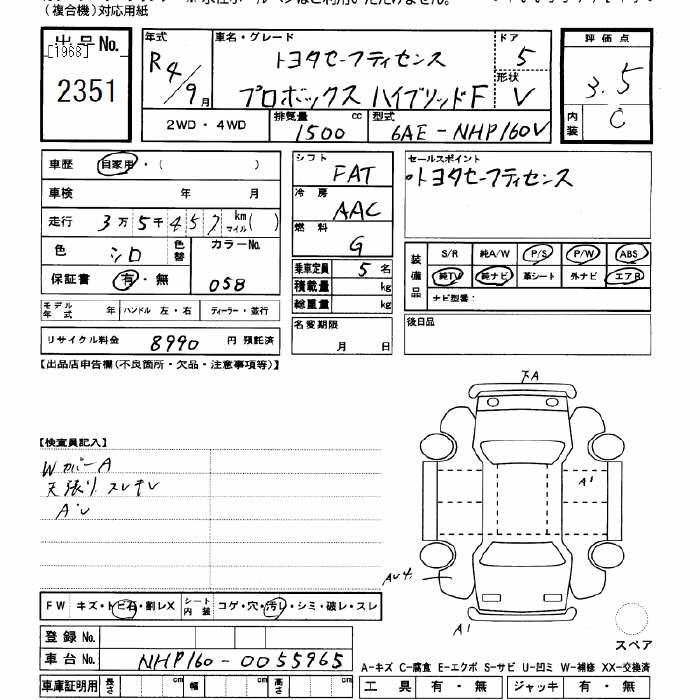 （複合機）対応用紙
出品No.
[1968]
2351
年式 R4/9月
車名・グレード トヨタセーフティセンス
プロボックス ハイブリッドF
ドア 5
形状 V
2WD・4WD
排気量 1500 cc
型式 6AE-NHP160V
評価点
3.5
内装 C
車歴 自家用・( )
車検 年 月
走行 3万5千457 km マイル( )
色 シロ 色替
カラーNo. 058
保証書 有・無
モデル年式 年 ハンドル 左・右 ディーラー・並行
リサイクル料金 8990 円 預託済
シフト FAT
冷房 AAC
燃料 G
乗車定員 5 名
積載量 kg
総重量 kg
名変期限
月 日
セールスポイント
・トヨタセーフティセンス
装備品
S/R 純A/W P/S P/W ABS
純TV 純ナビ 革シート 外ナビ エアB
ナビ型番：
後日品
【出品店申告欄(不良箇所・欠品・注意事項等)】
【検査員記入】
WカバーA
天張り スレキレ
下A
A1
A1
FW キズ・トビ石・割レX
シート内装 コゲ・穴・汚レ・シミ・破レ・スレ
登録No.
車台No. NHP160-0055965
スペア
A-キズ C-腐食 E-エクボ S-サビ U-凹ミ W-補修 XX-交換済
車庫証明用 長さ cm 幅 cm 高さ cm
工具 有・無 ジャッキ 有・無